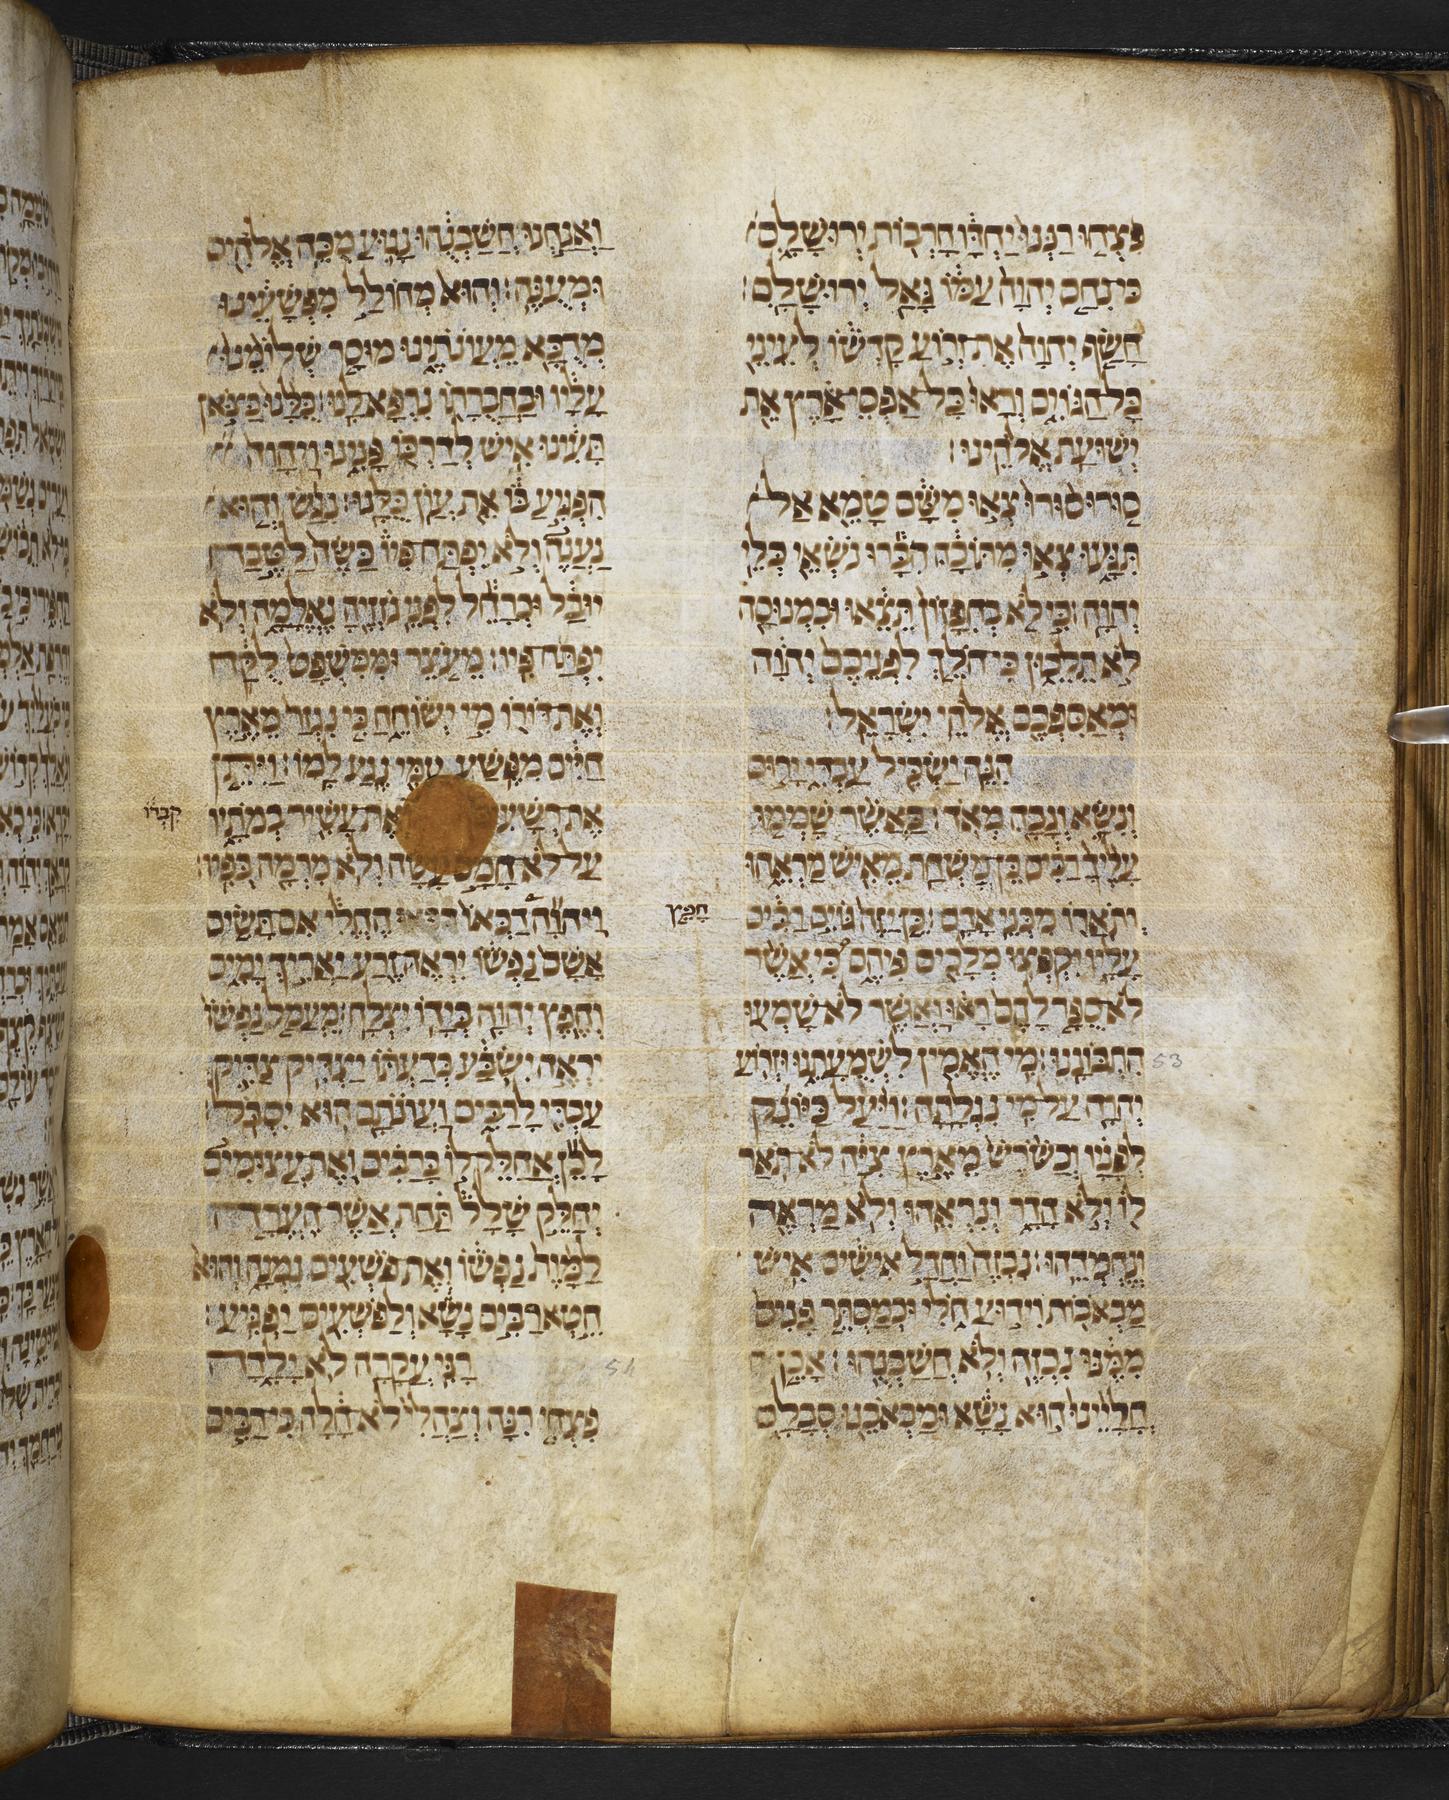 פצחו רננו יחדו חרבות ירושלם
כי נחם יהוה עמו גאל ירושלם׃
חשף יהוה את זרוע קדשו לעיני
כל הגוים וראו כל אפסי ארץ את
ישועת אלהינו׃
סורו סורו צאו משם טמא אל
תגעו צאו מתוכה הברו נשאי כלי
יהוה׃ כי לא בחפזון תצאו ובמנוסה
לא תלכון כי הלך לפניכם יהוה
ומאספכם אלהי ישראל׃
הנה ישכיל עבדי ירום
ונשא וגבה מאד׃ כאשר שממו
עליך רבים כן משחת מאיש מראהו
ותארו מבני אדם׃ כן יזה גוים רבים
עליו יקפצו מלכים פיהם כי אשר
לא ספר להם ראו ואשר לא שמעו
התבוננו׃ מי האמין לשמעתנו וזרוע
יהוה על מי נגלתה׃ ויעל כיונק
לפניו וכשרש מארץ ציה לא תאר
לו ולא הדר ונראהו ולא מראה
ונחמדהו׃ נבזה וחדל אישים איש
מכאבות וידוע חלי וכמסתר פנים
ממנו נבזה ולא חשבנהו׃ אכן
חליינו הוא נשא ומכאבנו סבלם
53
חפץ
ואנחנו חשבנהו נגוע מכה אלהים
ומענה׃ והוא מחולל מפשעינו
מדכא מעונתינו מוסר שלומנו
עליו ובחברתו נרפא לנו׃ כלנו כצאן
תעינו איש לדרכו פנינו ויהוה
הפגיע בו את עון כלנו׃ נגש והוא
נענה ולא יפתח פיו כשה לטבח
יובל וכרחל לפני גזזיה נאלמה ולא
יפתח פיו׃ מעצר וממשפט לקח
ואת דורו מי ישוחח כי נגזר מארץ
חיים מפשע עמי נגע למו׃ ויתן
את רשעי את עשיר במתיו
על לא חמס עשה ולא מרמה בפיו׃
ויהוה דכאו החלי אם תשים
אשם נפשו יראה זרע יאריך ימים
וחפץ יהוה בידו יצלח׃ מעמל נפשו
יראה ישבע בדעתו יצדיק צדיק
עבדי לרבים ועונתם הוא יסבל׃
לכן אחלק לו ברבים ואת עצומים
יחלק שלל תחת אשר הערה
למות נפשו ואת פשעים נמנה והוא
חטא רבים נשא ולפשעים יפגיע׃
רני עקרה לא ילדה
פצחי רנה וצהלי לא חלה כי רבים
קברו
54